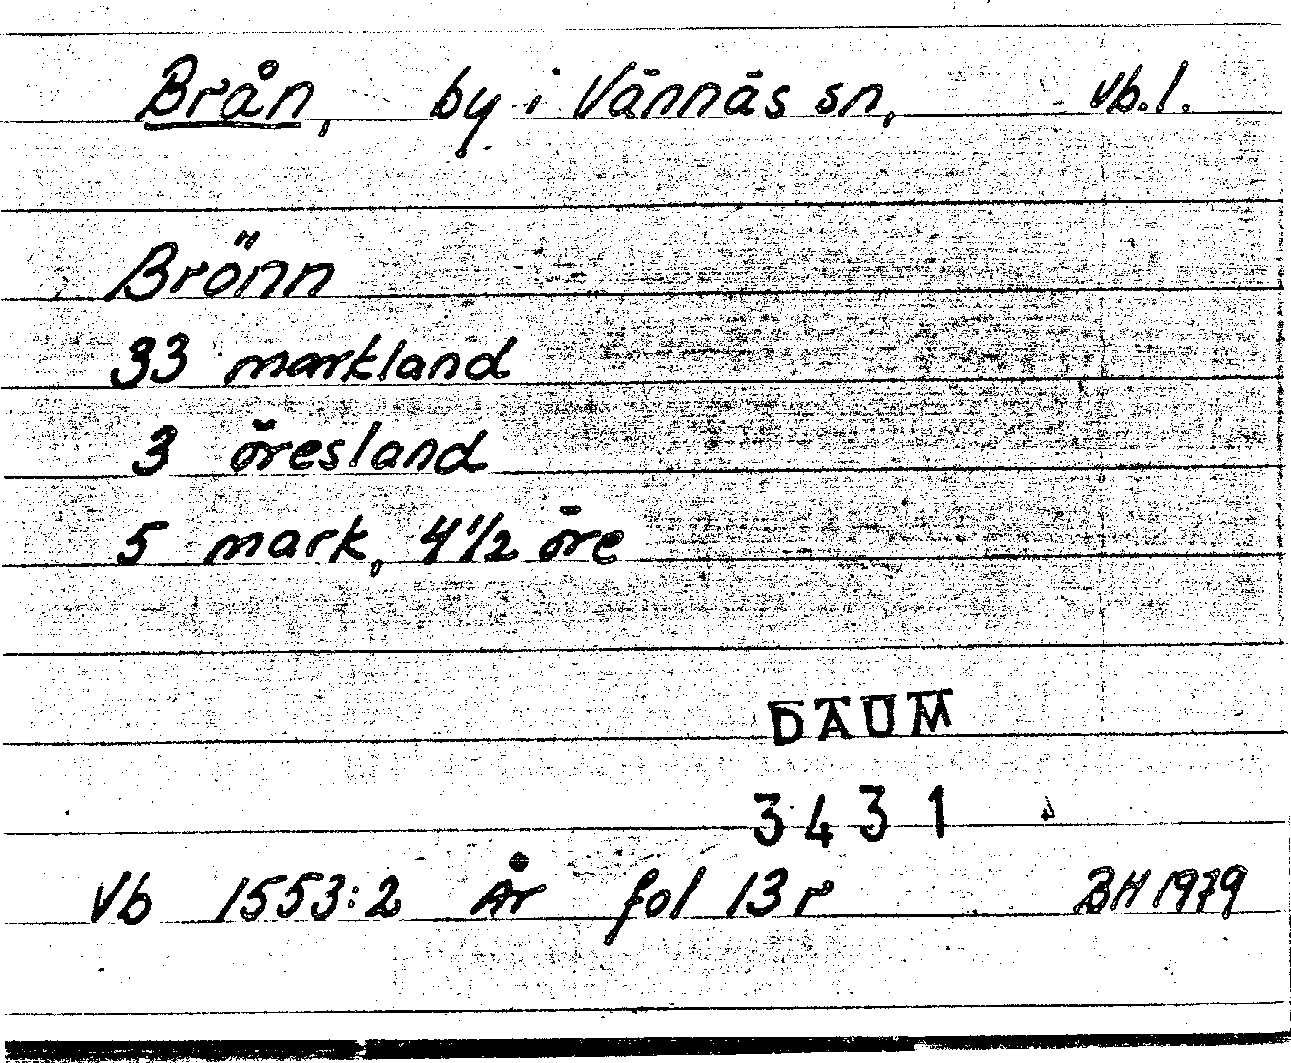 Brån, by i Vännäs sn, Vb. l.
Brönn
33 markland
3 öresland
5 mark, 4 1/2 öre
DAUM
3431
Vb 1553:2 År fol 13 r BH 1979